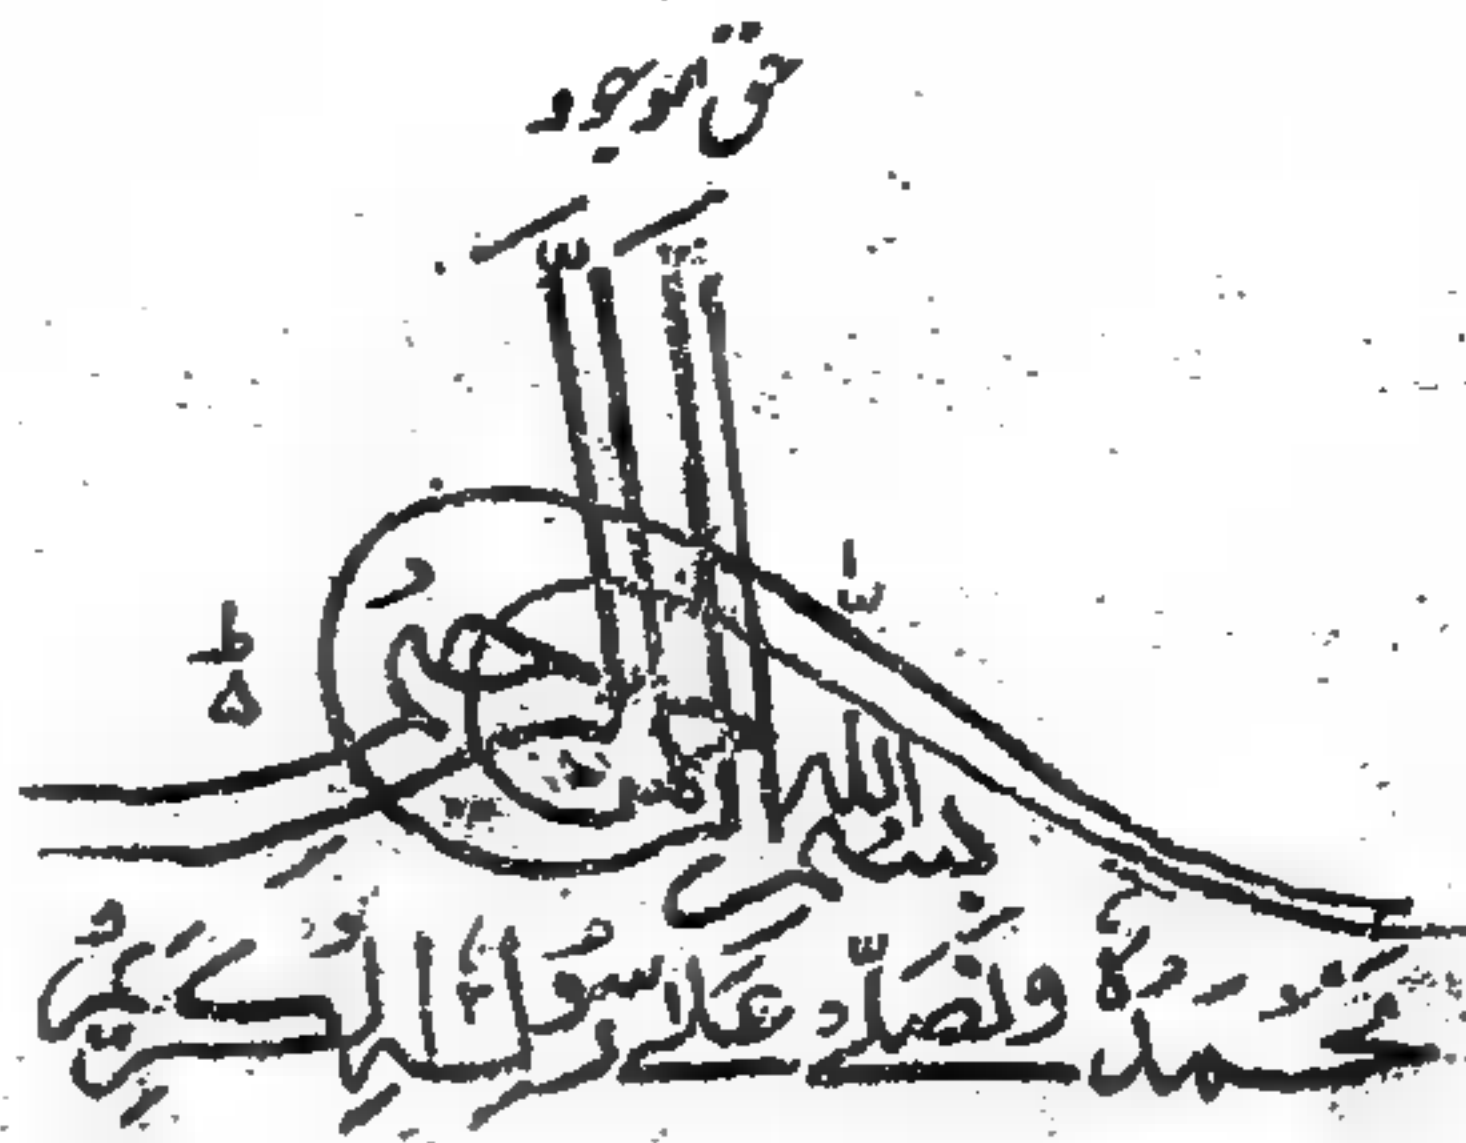 حق موجود
بسم الله الرحمن الرحیم
نحمدہ ونصلی علی رسولہ الکریم